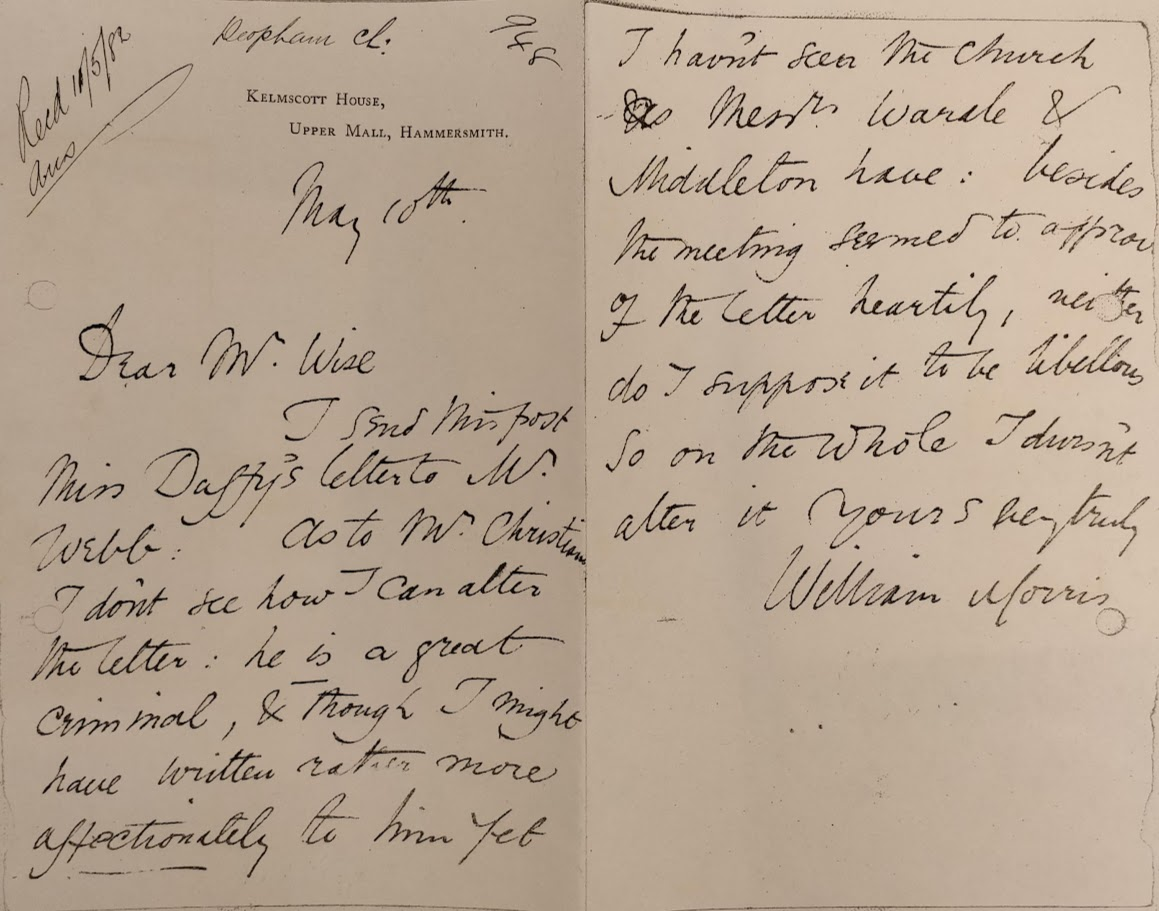 Deopham Ch:
Recd 11/5/82
ans
KELMSCOTT HOUSE,
UPPER MALL, HAMMERSMITH.
May 10th.
Dear Mr. Wise
I send this post
Miss Duffy's letter to Mr.
Webb: As to Mr. Christian
I don't see how I can alter
the letter: he is a great
criminal, & though I might
have written rather more
affectionately to him yet
I havn't seen the church
as Messrs Wardle &
Middleton have: besides
the meeting seemed to approve
of the letter heartily, neither
do I suppose it to be libellous
So on the whole I dursn't
alter it Yours very truly
William Morris